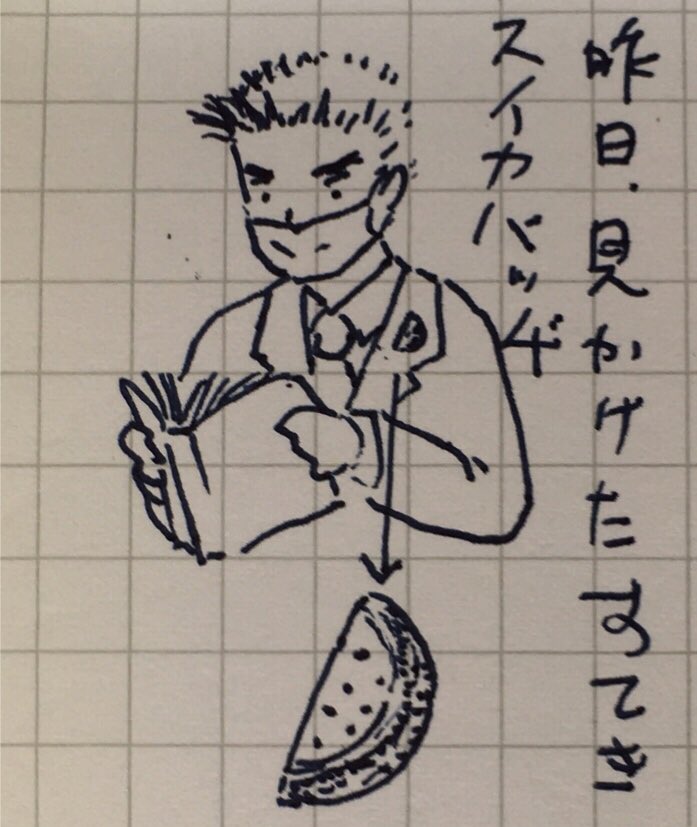 昨日、見かけたすてき
スイカバッヂ